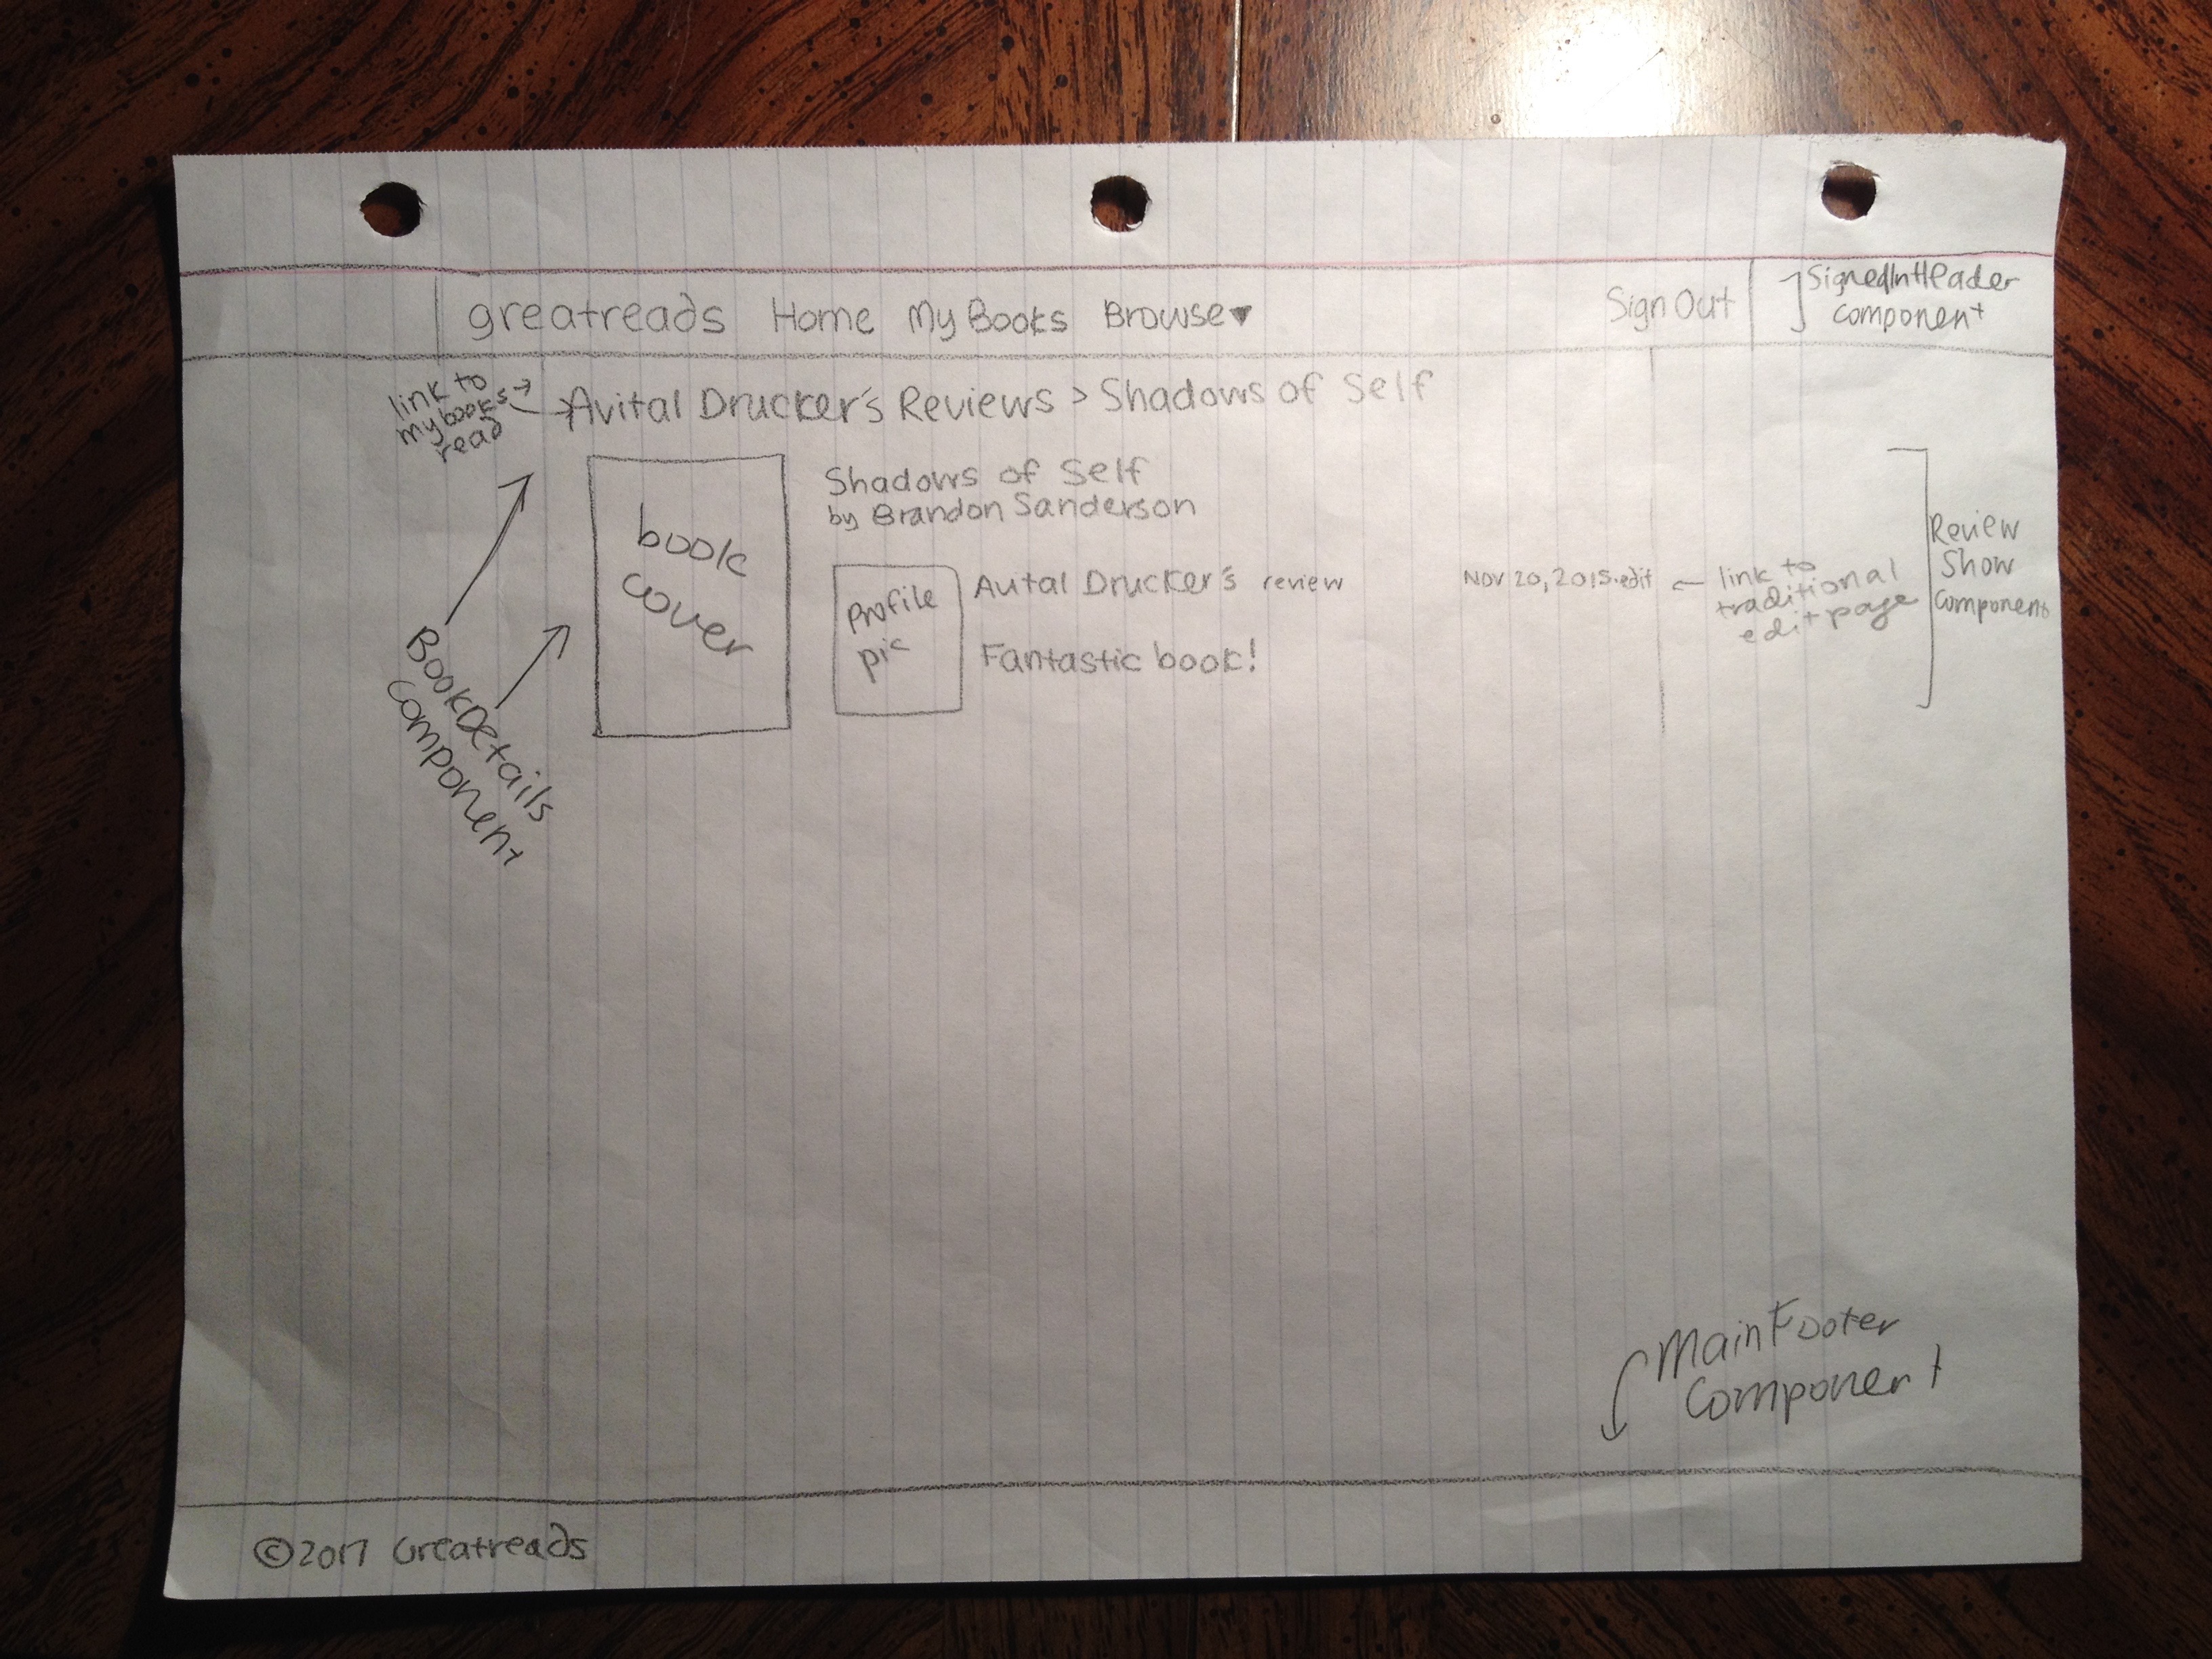 greatreads Home My Books Browse▼ Sign Out
SignedInHeader
component
link to
my books
read
Avital Drucker's Reviews > Shadows of Self
book
cover
Shadows of Self
by Brandon Sanderson
profile
pic
Avital Drucker's review
Nov 20, 2015·edit
Fantastic book!
link to
traditional
edit page
Review
Show
Component
BookDetails
component
MainFooter
Component
©2017 Greatreads